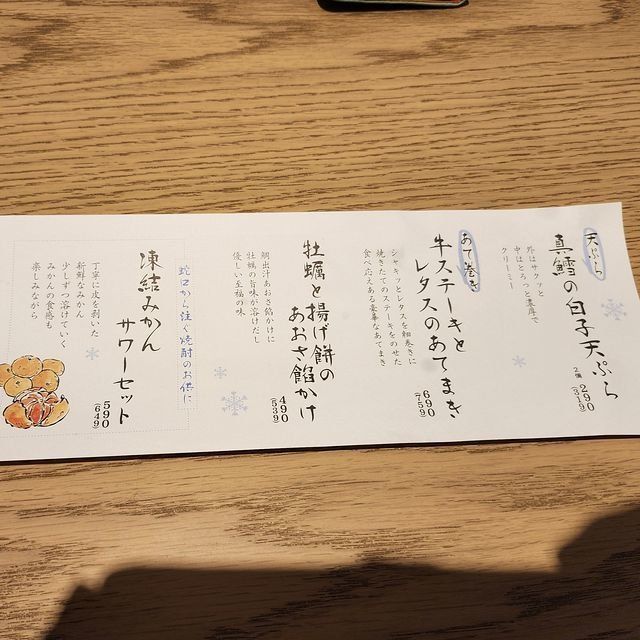 天ぷら
真鱈の白子天ぷら
2個 290
(319)
外はサクッと
中はとろっと濃厚で
クリーミー
あて巻き
牛ステーキと
レタスのあてまき
690
(759)
シャキッとレタスを細巻きに
焼きたてのステーキをのせた
食べ応えある豪華なあてまき
牡蠣と揚げ餅の
あおさ餡かけ
490
(539)
鯛出汁あおさ餡かけに
牡蠣の旨味が溶けだし
優しい至福の味
蛇口から注ぐ焼酎のお供に
凍結みかん
サワーセット
590
(649)
丁寧に皮を剥いた
新鮮なみかん
少しずつ溶けていく
みかんの食感も
楽しみながら